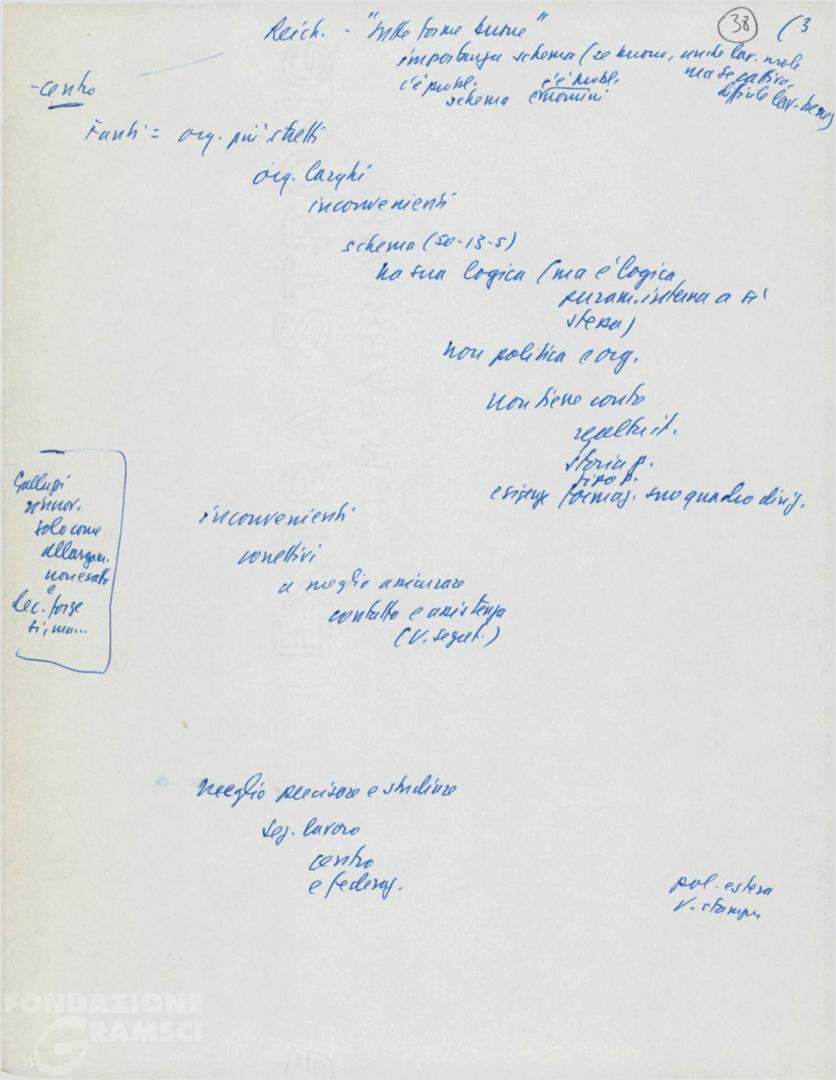 38 (3
Reich. - "sulle forme buone"
importanza schema (se buono, anche lav. male
c'è probl. c'è probl. ma se cattivo,
schema e uomini difficile lav. bene)
- centro
Fanti = org. più stretti
org. larghi
inconvenienti
schema (50-13-5)
ha sua logica (ma è logica
puram. interna a sé
stessa)
non politica e org.
non tiene conto
realtà it.
storia p.
tipo p.
esigenze formaz. suo quadro dirig.
Galluzzi
rinnov.
solo come
allargam.
non esatto
e
dec. forse
sì, ma...
inconvenienti
correttivi
a meglio assicurare
contatto e assistenza
(V. segret.)
meglio precisare e studiare
sez. lavoro
centro
e federaz.
pol. estera
V. stampa
FONDAZIONE
GRAMSCI